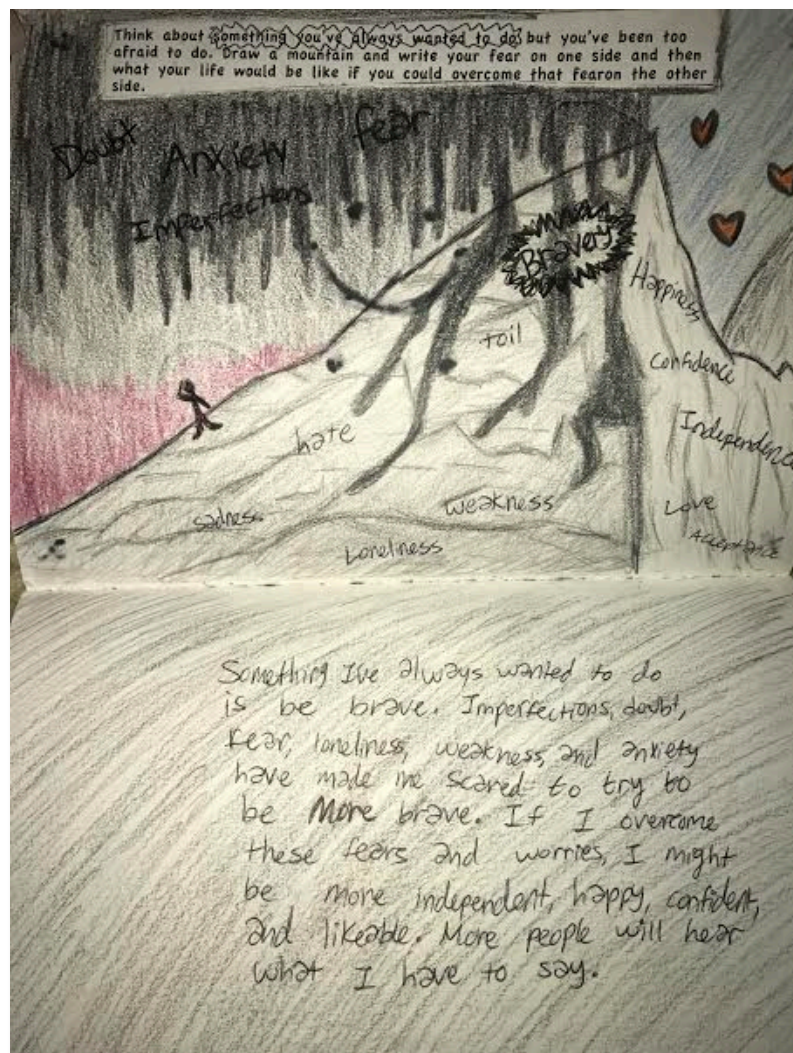 Think about something you've always wanted to do, but you've been too
afraid to do. Draw a mountain and write your fear on one side and then
what your life would be like if you could overcome that fearon the other
side.
Doubt Anxiety fear
Imperfections
Bravery
Happiness
toil
Confidence
hate
Independence
sadness
weakness
Love
Loneliness
Acceptance
Something I've always wanted to do
is be brave. Imperfections, doubt,
fear, loneliness, weakness, and anxiety
have made me scared to try to
be More brave. If I overcome
these fears and worries, I might
be more independent, happy, confident,
and likeable. More people will hear
what I have to say.